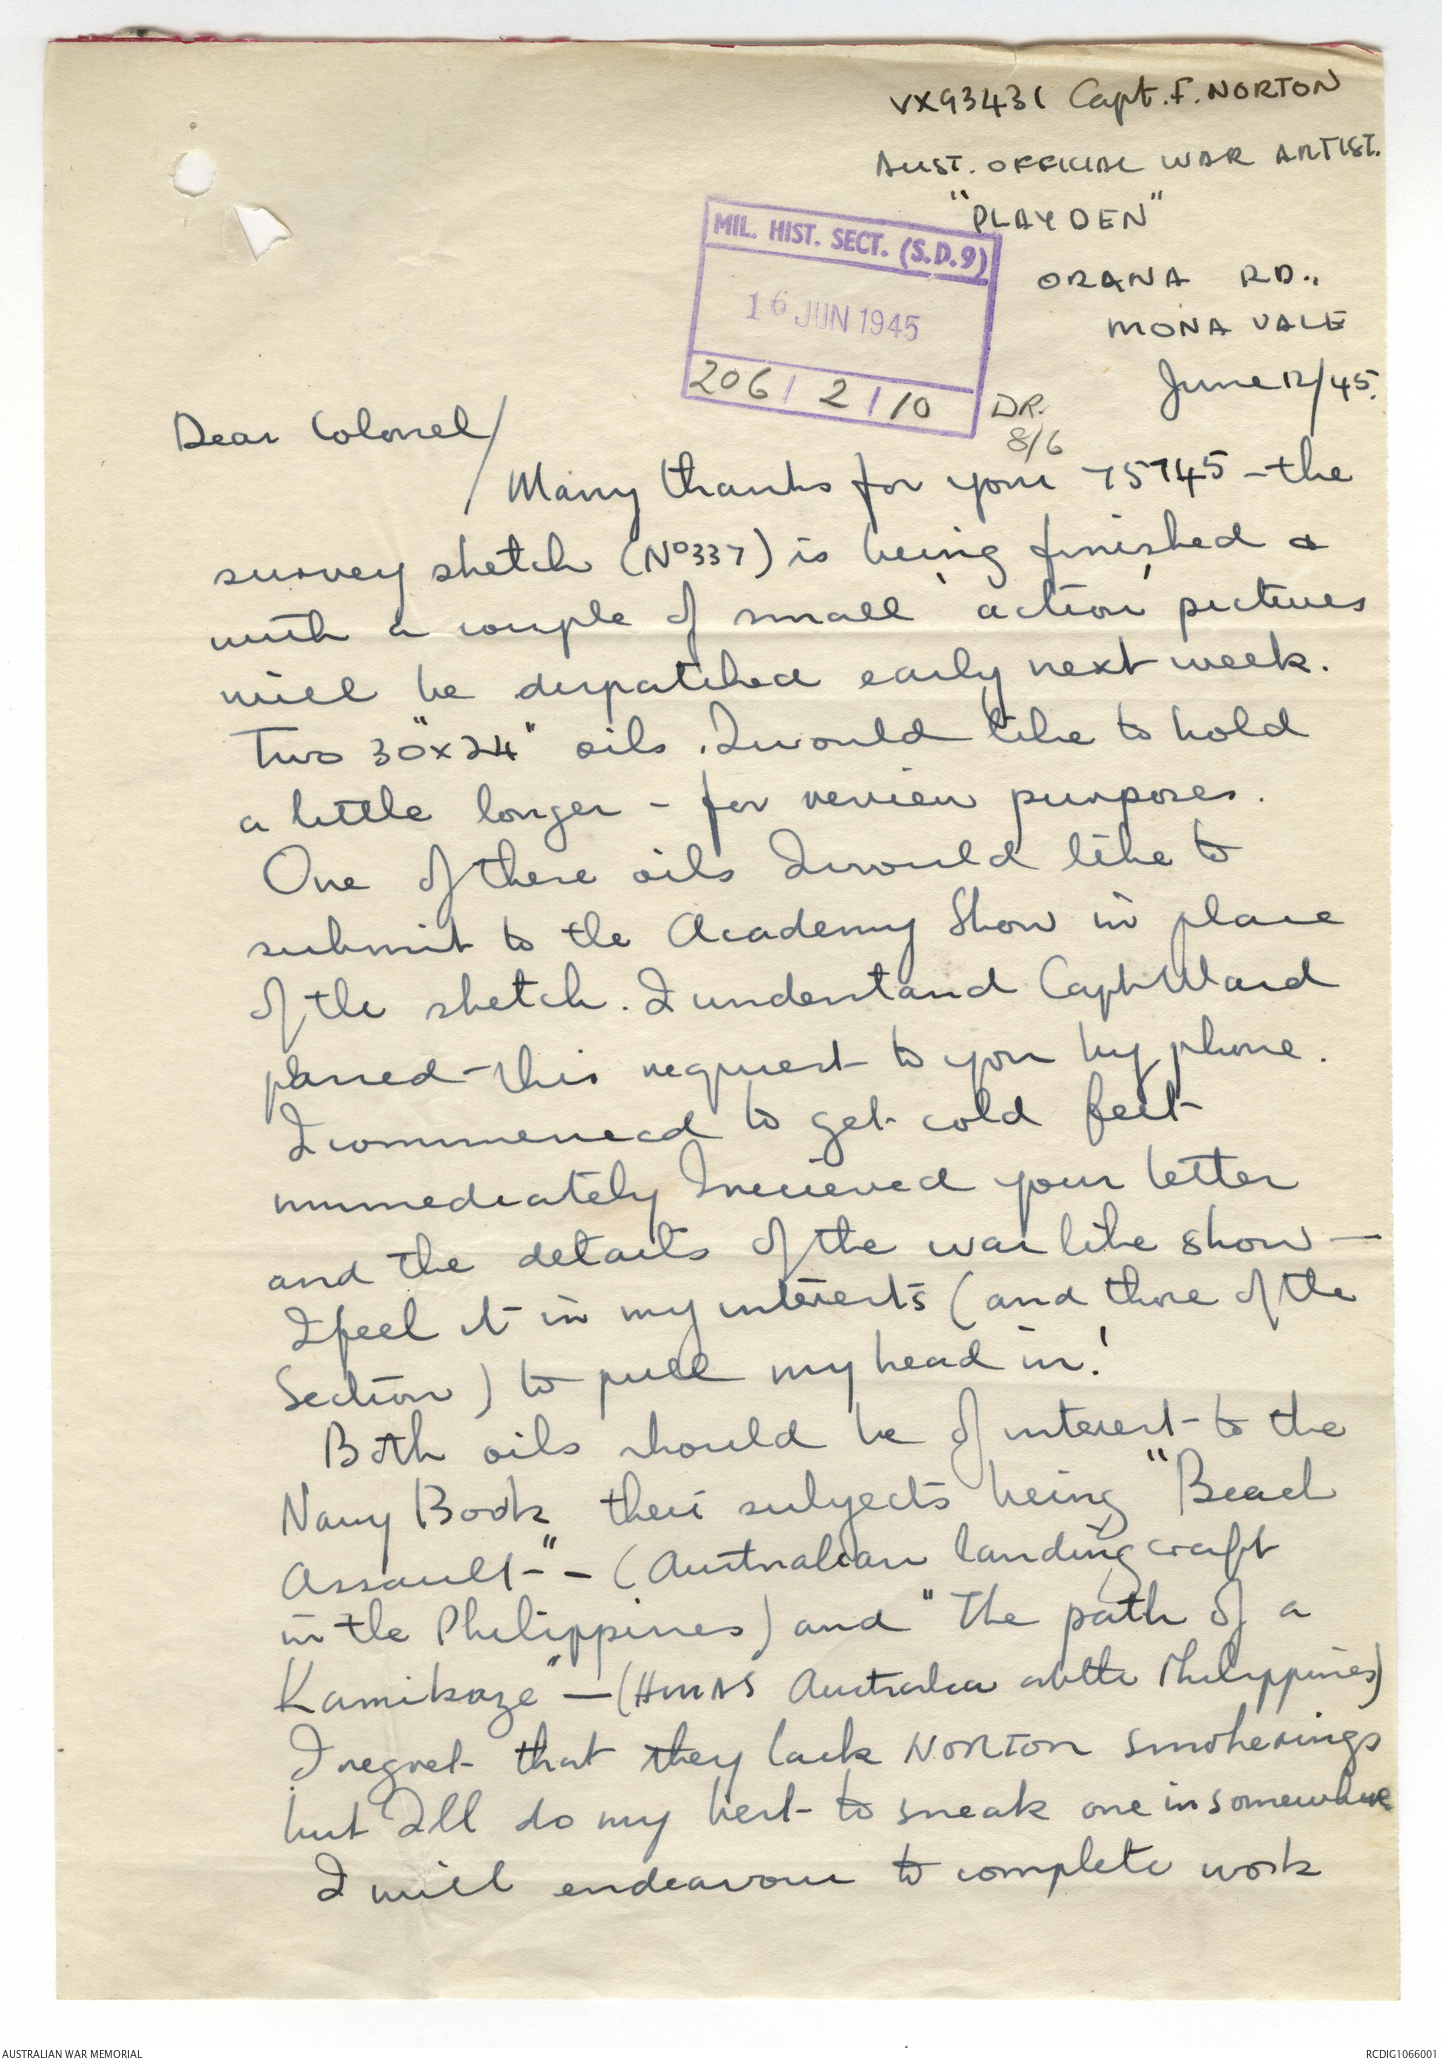 VX93431 Capt. F. NORTON
AUST. OFFICIAL WAR ARTIST.
"PLAYDEN"
ORANA RD.,
MONA VALE
June 12/45.
MIL. HIST. SECT. (S.D.9)
16 JUN 1945
206 / 2 / 10
DR.
8/6
Dear Colonel/
Many thanks for your 75745 - the
survey sketch (No 337) is being finished &
with a couple of small 'action' pictures
will be dispatched early next week.
Two 30"x24" oils I would like to hold
a little longer - for review purposes.
One of these oils I would like to
submit to the Academy Show in place
of the sketch. I understand Capt Ward
passed this request to you by phone.
I commenced to get cold feet
immediately I recieved your letter
and the details of the warlike show -
I feel it in my interests (and those of the
Section) to pull my head in!
Both oils should be of interest to the
Navy Book their subjects being "Beach
Assault" - (Australian landing craft
in the Philippines) and "The path of a
Kamikaze" - (HMAS Australia at the Philippines)
I regret that they lack NORTON smokerings
but I'll do my best to sneak one in somewhere
I will endeavour to complete work
AUSTRALIAN WAR MEMORIAL
RCDIG1066001